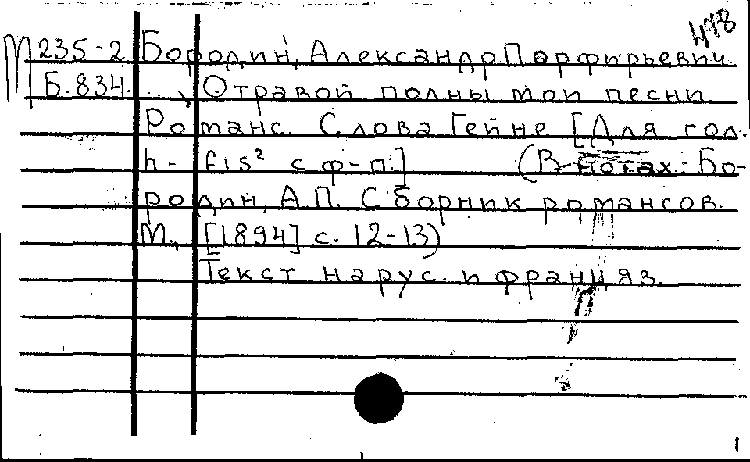 478
М 235-2 Бородин, Александр Порфирьевич
Б.834. ..., Отравой полны мои песни
Романс. Слова Гейне [Для гол.
h - fis² с ф-п.] (В нотах: Бо-
родин, А.П. Сборник романсов.
М., [1894] с. 12-13)
Текст на рус. и франц. яз.
1